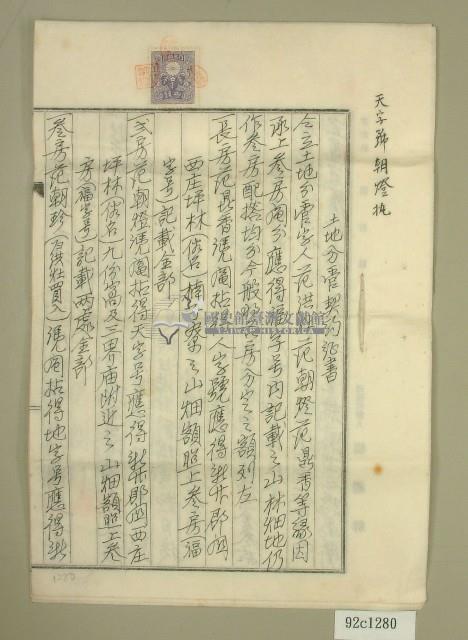 天字號 朝燈執
土地分管契約証書
仝立土地分管字人范洪 范朝燈范鼎香等緣因
承上叁房鬮分應得 字号內記載之山林畑地仍
作叁房配搭均分今般 房分守之額列左
長房范鼎香憑鬮拈 人字號應得新竹郡 西庄坪林(俗名 寮之山畑額照上叁房福
字号)記載全部
貳房范朝燈憑鬮拈得天字号應得新竹郡 西庄
坪林(俗名)九份窩及三界庙附近之山畑額照上叁
房(福字号)記載兩處全部
叁房范朝珍( 洪灶買入)憑鬮拈得地字号應得新
國史館臺灣文獻館
TAIWAN HISTORICA
1280
92c1280